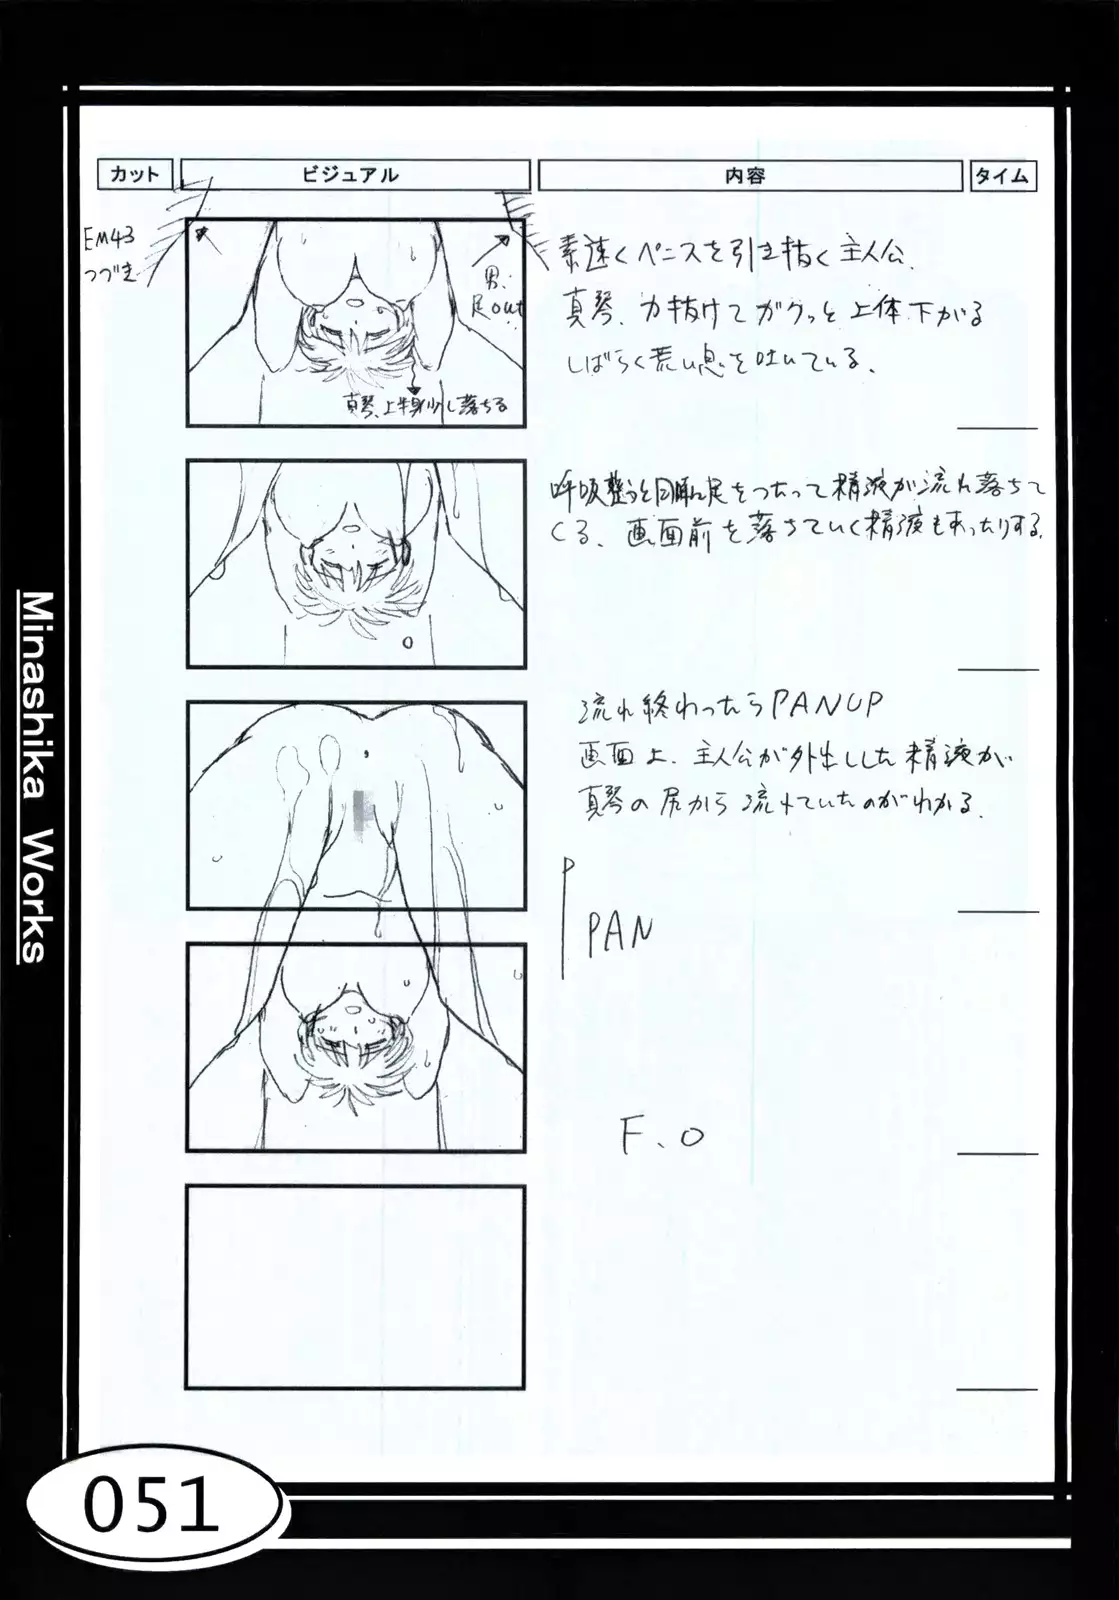 カット ビジュアル 内容 タイム
EM43
つづき
男、
足out
真琴、上半身少し落ちる
素速くペニスを引き抜く主人公。
真琴、力抜けてガクっと上体下がる
しばらく荒い息を吐いている。
足をつたって精液が流れ落ちて
くる。画面前を落ちていく精液もあったりする。
流れ終わったらPANUP
画面上、主人公が外出しした精液が
真琴の尻から流れていたのがわかる。
PAN
F.O
Minashika Works
051